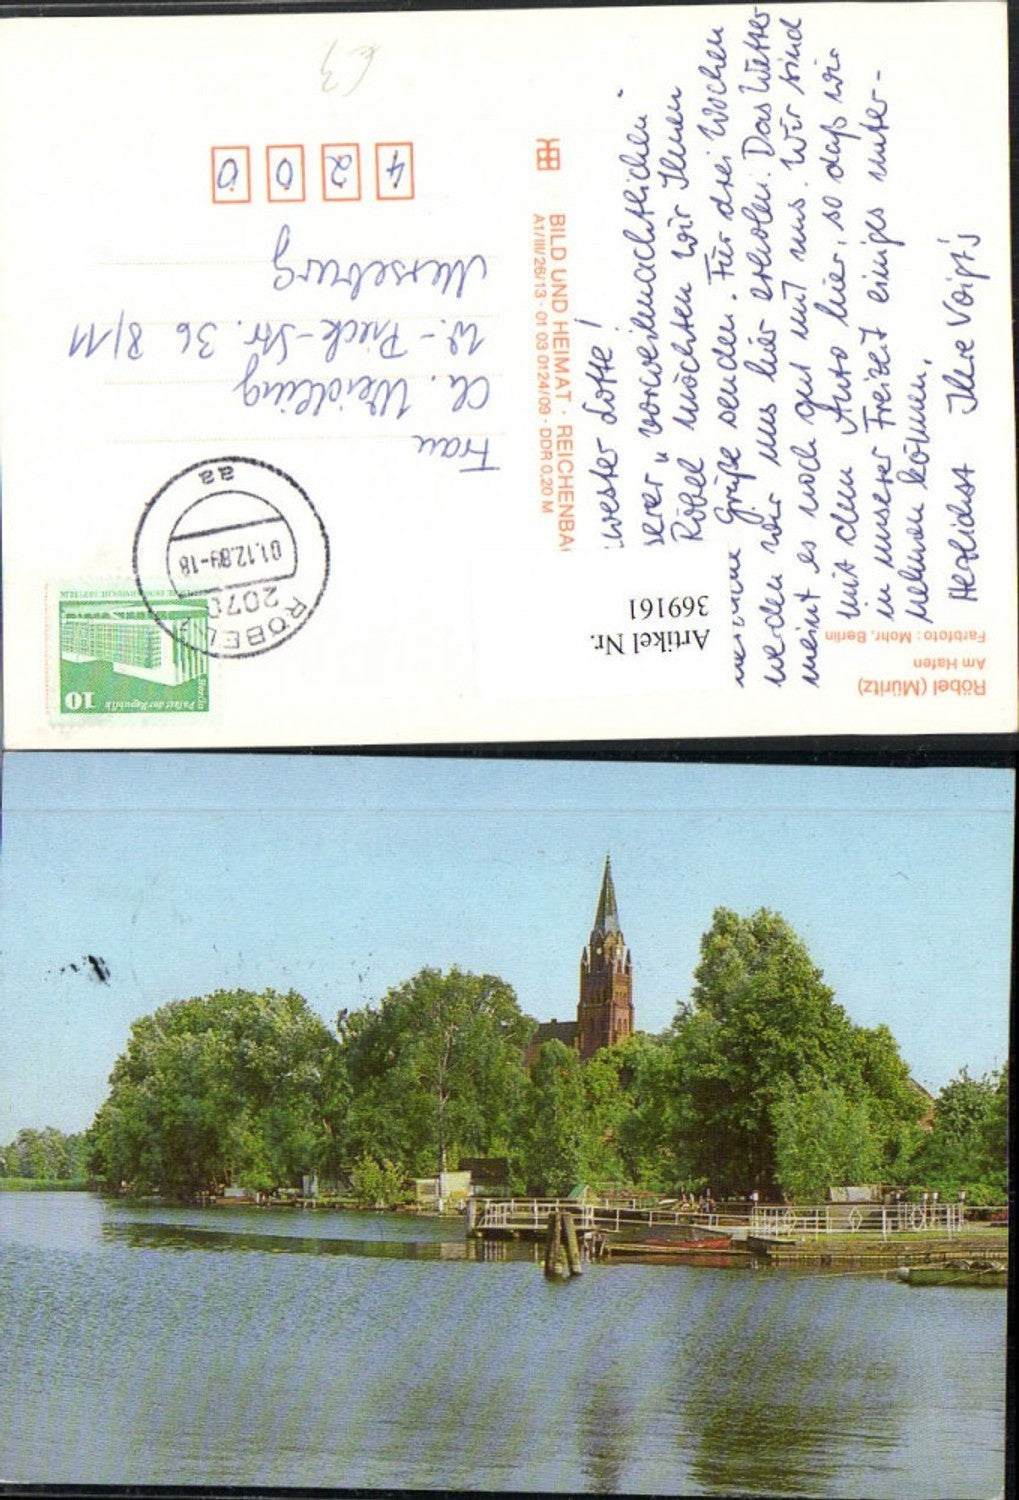 Röbel (Müritz)
Am Hafen
Farbfoto: Mohr, Berlin
Artikel Nr.
369161
BILD UND HEIMAT · REICHENBA
A1/III/26/13 · 01 03 0124/09 · DDR 0,20 M
wester Lotte!
serer " vorweihnachtlichen "
Röbel möchten wir Ihnen
Grüße senden. Für drei Wochen
werden wir uns hier erholen. Das Wetter
meint es noch gut mit uns. Wir sind
mit dem Auto hier, so daß wir
in unserer Freizeit einiges unter-
nehmen können.
Herzlichst Ihre Voigt's
10
Berlin Palast der Republik
RÖBEL
2070
01.12.89-18
aa
Frau
Ch. Weidling
W.-Pieck-Str. 36 8/11
Merseburg
4 2 0 0